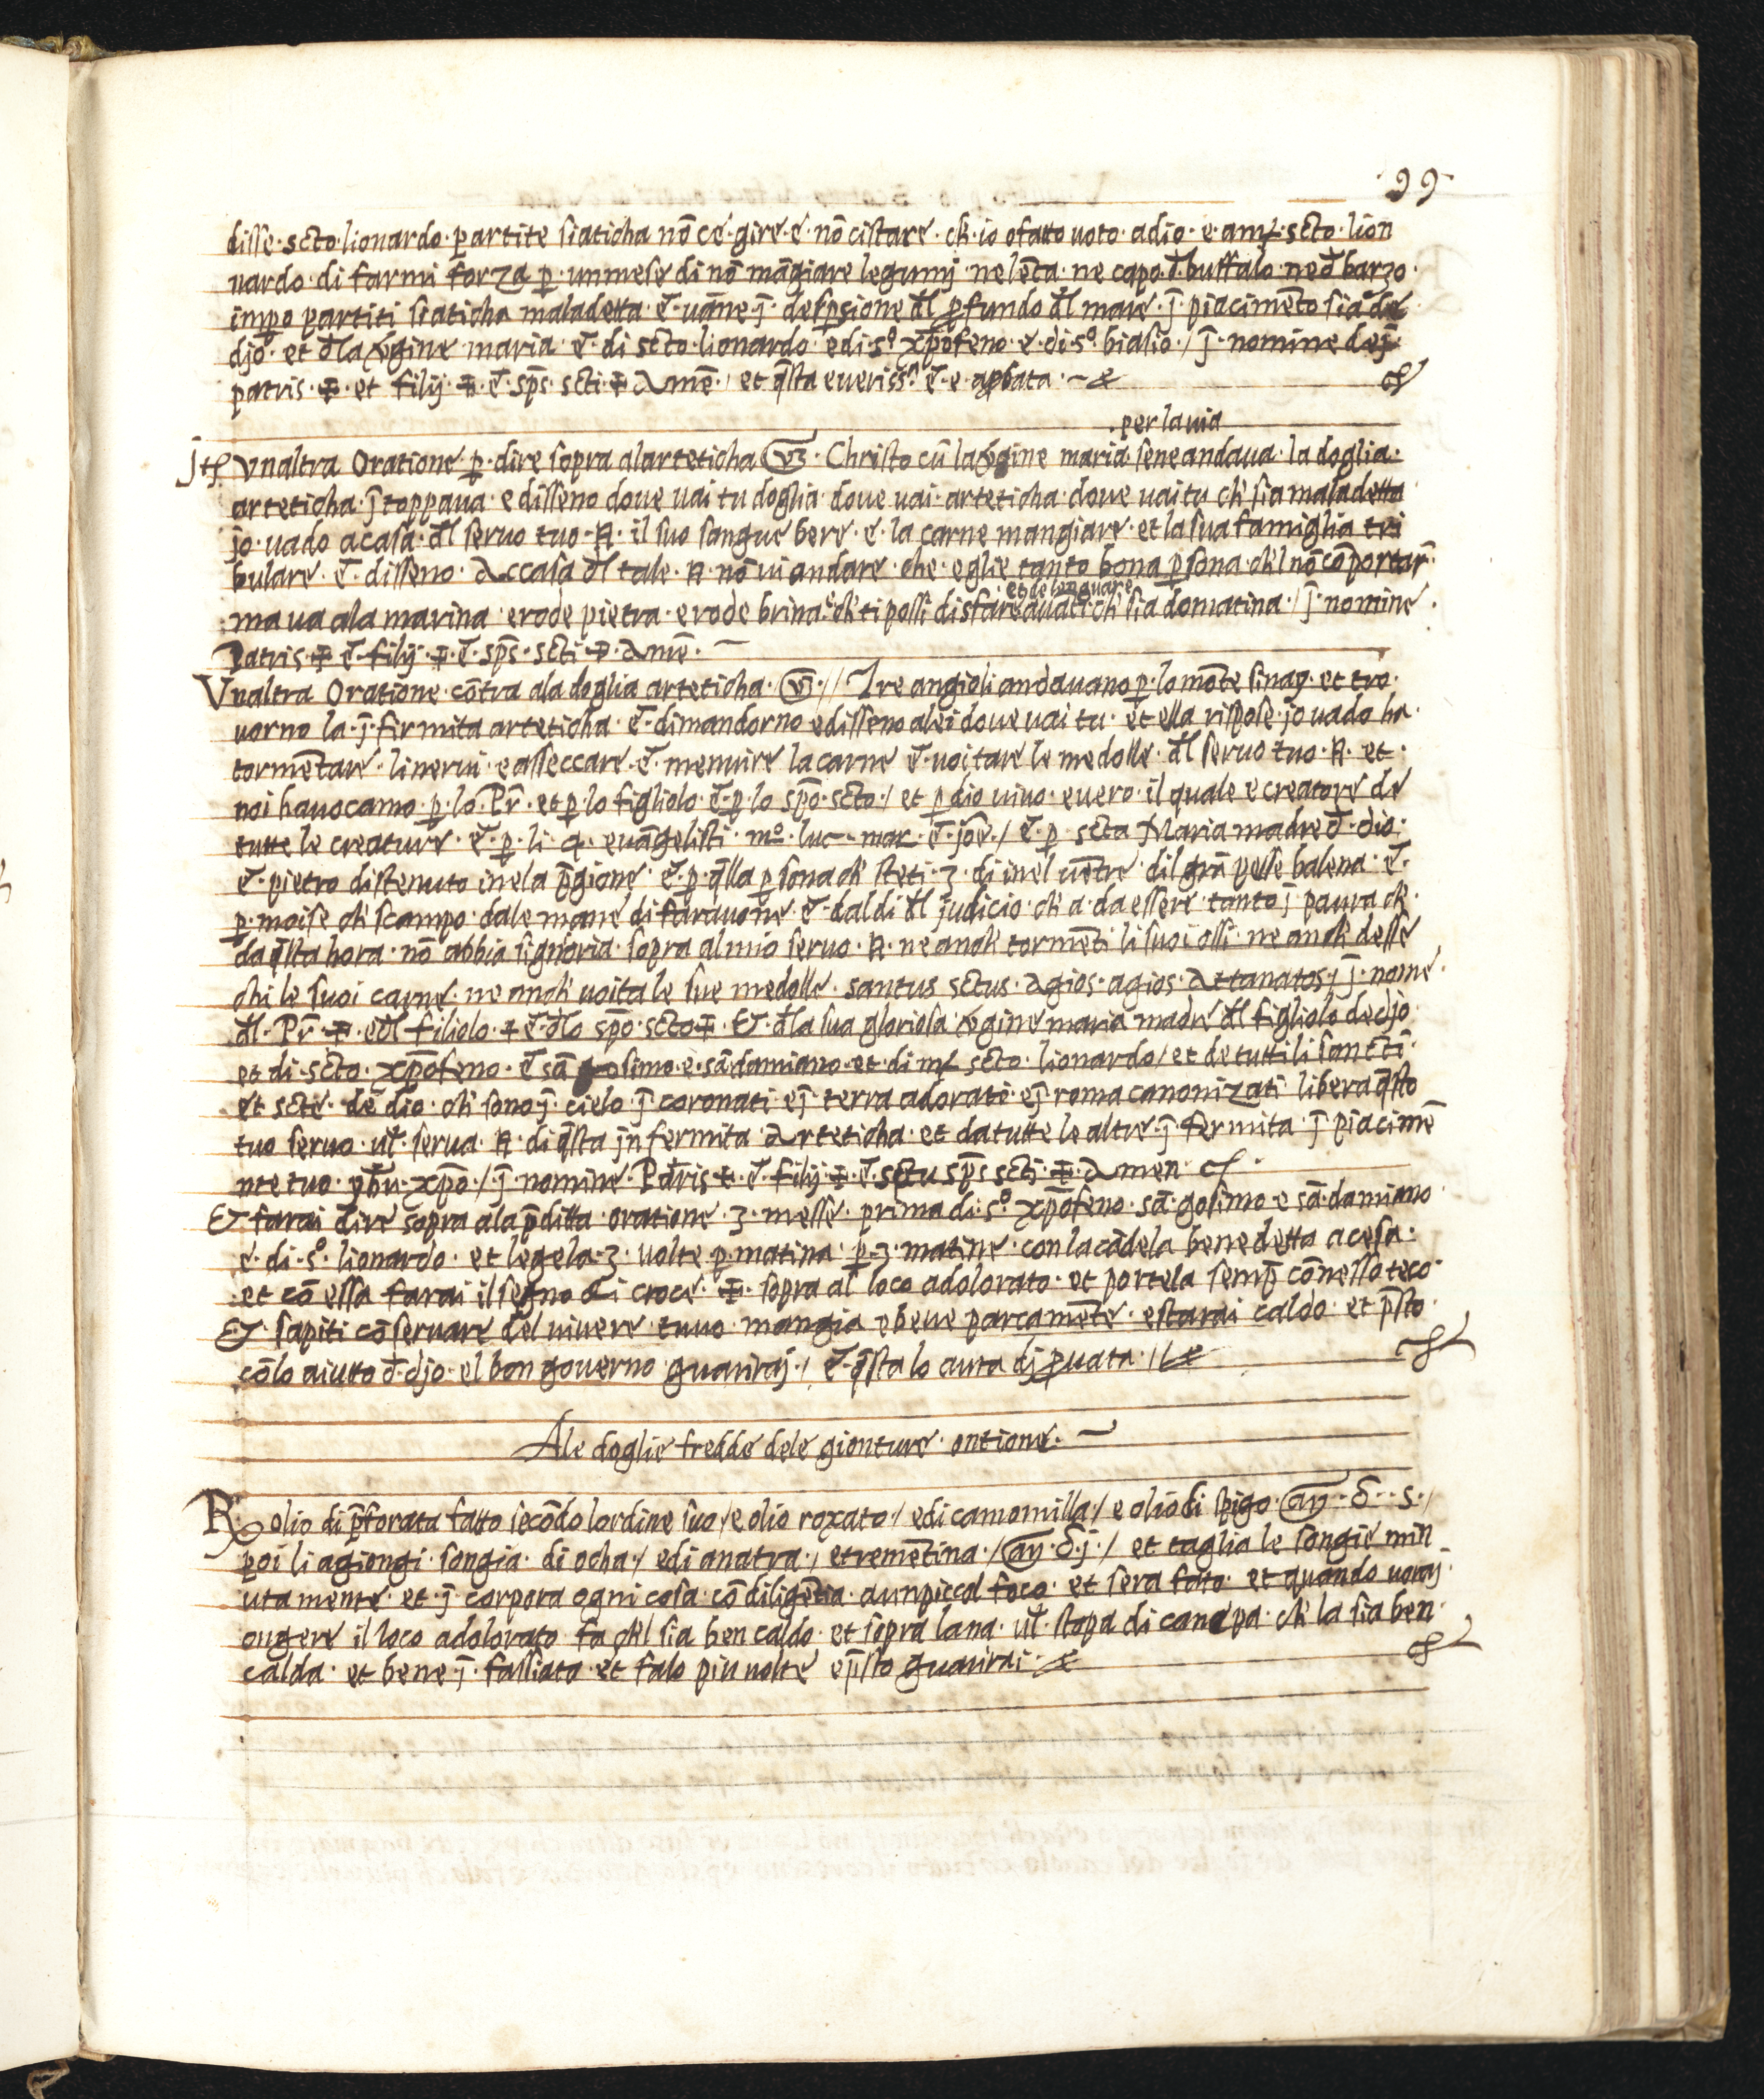 ·99·
disse·scto·lionardo·p̱artite siaticha nō ce·gire·e·nō cistare·ch̄·io ofatto uoto·adio·e·a mʒ·scto·lion
nardo·di farmi forza p̱·unmese di nō māgiare legumj·ne lēta·ne capo·đ·buffalo·ne đ barzo·
imp̱o partiti siaticha maladetta·e͂·uāne·j̄·desp̱sione đl p̱fundo đl mare·j̄·piacimēto sia de
djo·et đla v̄gine maria·e͂·di scto·lionardo·edi s°·xp̄ofeno·e·di·s°·biasio·/ j̄·nomine dej·
patris·✠·et filij·✠·e͂·sp̄s·scti·✠ amē·/ et q̄sta eueriss.ᵃ e͂·e·ap̱bata·~
·per la uia
jtē vnaltra Oratione·p̱·dire sopra alarteticha vʒ·Christo cū la v̄gine maria·seneandaua·la doglia·
arteticha·j̄toppaua·e disseno doue uai tu doglia·doue uai·arteticha·doue uai tu ch̄ sia maladetta
jo·uado a casa·đl seruo tuo·N·il suo sangue bere·e·la carne mangiare·et la sua famiglia tri
bulare·e͂·disseno·Accasa đl tale·N·nō ui andare·che·eglie tanto bona p̱sona·ch̄l nō cōportar̄·
et delenguare
·ma ua ala marina·erode pietra·erode brina·e ch̄ ti possi disfare auāti·ch̄ sia domatina·/ j̄·nomine·
Patris·✠·e͂·filij·✠·e͂·sp̄s·scti·✠·Amē·~
Vnaltra Oratione·cōtra ala doglia arteticha·vʒ·// Tre angioli andauano p̱·lo mōte sinay·et tro·
uorno la·j̄·firmita arteticha·e͂·dimandorno e disseno alei doue uai tu·et ella rispose·jo uado ha·
tormētare·linerui·e asseccare·e͂·menuire la carne e͂·uoitare le medolle·đl seruo tuo·N·et·
noi hauocamo·p̱·lo·Pr̄·et p̱·lo figliolo·e͂·p̱·lo sp̄o·scto·/ et p̱ dio uiuo·euero·il quale e creatore de
tutte le creature·e͂·p̱·li·4·euāgelisti·m°·luc·mar·e͂·joē·/ e͂·p̱·scta Maria madre đ·dio·
e͂·pietro distenuto inela p̄gione·e͂·p̱·q̄lla p̱sona ch̄ steti·3·di inel uētre·dil grā pesse balena·e͂·
p̱·moise ch̄ scampo·dale mane di farauone·e͂·dal di đl judicio·ch̄ a·da essere·tanto j̄ paura ch̄·
da q̄sta hora·nō abbia signoria·sopra al mio seruo·N·ne anch̄ tormēti li suoi ossi·ne anch̄ desse
chi le suoi carne·ne anch̄ uoita le sue medolle·santus sctus·Agios·agios·Attanatos·j j̄·nome·
đl·Pr̄·✠·eđl filiolo·✠ e͂·đlo sp̄o·scto✠·Et·đla sua gloriosa v̄gine maria madre đl figliolo de djo·
et di·scto·xp̄ofeno·e͂ sā gosimo·e·sā·damiano·et·di mʒ scto·lionardo·/ et de tutti li sancti·
et scte·de dio·ch̄ sono j̄·cielo j̄ coronati·ej̄ terra adorati·ej̄ roma canonizati·libera q̄sto
tuo seruo·ul̄·serua·N·di q̄sta jnfermita Arteticha·et da tutte le altre·j̄·fermita·j̄ piacimē
nte tuo·yh̄u·xp̄o·/ j̄·nomine·Patris·✠·e͂·filij·✠·e͂·sctu sp̄s scti·✠·Amen·
Et farai dire sopra ala p̄ditta·oratione·3·messe·prima di·s°·xp̄ofeno·sā·gosimo·e sā·damiano
e·di·s°·lionardo·et legela·3·uolte·p̱·matina·p̱·3·matine·con la cādela benedetta acesa·
·et cō essa farai il segno di croce·✠·sopra al loco adolorato·et portela semp̱ cō nesso teco·
Et·sapiti cōseruare del uiuere·tuuo·mangia e beue parcamēte·estarai caldo·et p̄sto·
cōlo aiuto đ·djo·el bon gouerno guariraj·/ e͂·q̄sta lo auta dj p̱uata·//
Ale doglie fredde dele gionture·ontione·~
R olio di p̱forata fatto secōdo lordine suo·/ e olio roxato·/ edi camomilla·/ e olio di spigo·aŋ·δ··s·/
poi li agiongi·songia·di ocha·/ edi anatra·/ etremētina·/ aŋ·δ·j·/ et taglia le songie min
uta mente·et·j̄ corpora ogni cosa·cō diligētia·aunpiccol foco·et sera fato·et quando uoraj·
ongere il loco adolorato·fa ch̄l sia ben caldo·et sopra lana·ul̄·stopa di canepa·ch̄ la sia ben·
calda·et bene j̄·fassiato·et falo piu uolte ep̄sto guarirai·